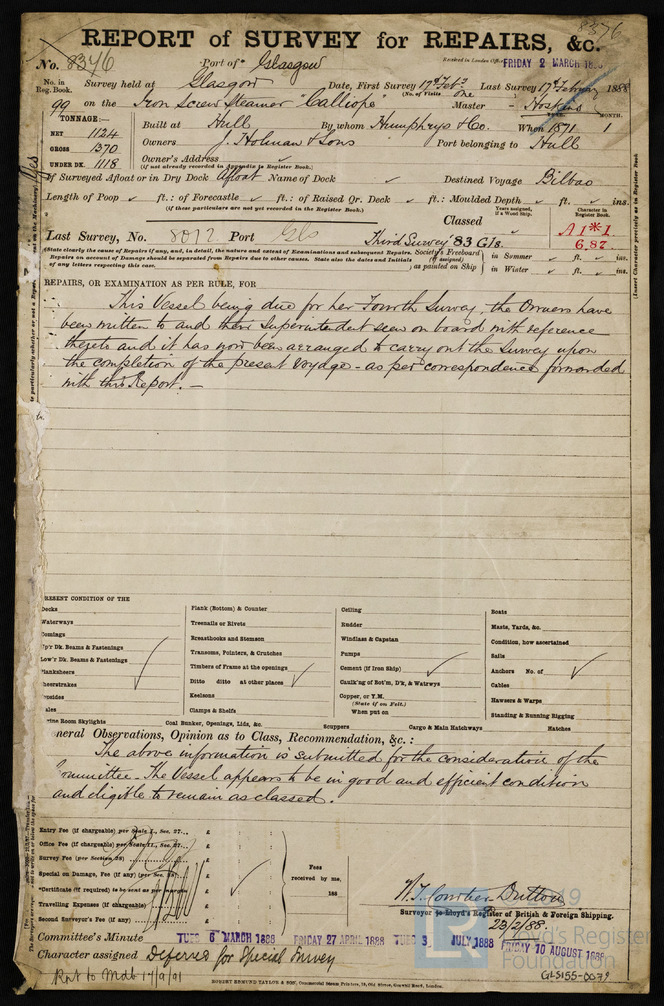 8376
REPORT of SURVEY for REPAIRS, &c.
No. 8376 Port of Glasgow Received in London Office FRIDAY 2 MARCH 1888
No. in Reg. Book. Survey held at Glasgow Date, First Survey 17th Feb. Last Survey 17th February 1888
(No. of Visits one)
99 on the Iron Screw Steamer "Calliope" Master Hoskens
TONNAGE:—
NET 1124
GROSS 1370
UNDER DK. 1118
Built at Hull By whom Humphrys & Co. When 1871 MONTH. 1
Owners J. Holman & Sons Port belonging to Hull
Owners' Address
(if not already recorded in Appendix to Register Book.)
If Surveyed Afloat or in Dry Dock Afloat Name of Dock Destined Voyage Bilbao
Length of Poop ft.: of Forecastle ft.: of Raised Qr. Deck ft.: Moulded Depth ft. ins.
(if these particulars are not yet recorded in the Register Book.)
Years assigned, if a Wood Ship. Character in Register Book.
Classed A1*1
6,82
Last Survey, No. 8012 Port Gls Third Survey 83 Gls.
(State clearly the cause of Repairs if any, and, in detail, the nature and extent of Examinations and subsequent Repairs.
Repairs on account of Damage should be separated from Repairs due to other causes. State also the dates and Initials
of any letters respecting this case.
Society's Freeboard (if assigned) as painted on Ship in Summer ft. ins.
in Winter ft. ins.
REPAIRS, OR EXAMINATION AS PER RULE, FOR
This Vessel being due for her Fourth Survey, the Owners have
been written to and their Superintendent seen on board with reference
thereto and it has now been arranged to carry out the Survey upon
the completion of the present Voyage - as per correspondence forwarded
with this Report. —
PRESENT CONDITION OF THE
Decks
Waterways
Comings
Up'r Dk. Beams & Fastenings
Low'r Dk. Beams & Fastenings
Planksheers
Sheerstrakes
Topsides
Wales
Engine Room Skylights
Plank (Bottom) & Counter
Treenails or Rivets
Breasthooks and Stemson
Transoms, Pointers, & Crutches
Timbers of Frame at the openings
Ditto ditto at other places
Keelsons
Clamps & Shelfs
Coal Bunker, Openings, Lids, &c.
Ceiling
Rudder
Windlass & Capstan
Pumps
Cement (if Iron Ship)
Caulk'ng of Bot'm, D'k, & Watrwys
Copper, or Y.M.
(State if on Felt.)
When put on
Scuppers
Cargo & Main Hatchways
Boats
Masts, Yards, &c.
Condition, how ascertained
Sails
Anchors No. of
Cables
Hawsers & Warps
Standing & Running Rigging
Hatches
General Observations, Opinion as to Class, Recommendation, &c.:
The above information is submitted for the consideration of the
Committee. The Vessel appears to be in good and efficient condition
and eligible to remain as classed.
Entry Fee (if chargeable) per Scale I., Sec. 27... £
Office Fee (if chargeable) per Scale II., Sec. 27... £
Survey Fee (per Section 28) £
Special on Damage, Fee (if any) (per Sec. 28) £
Certificate (if required) to be sent as per margin £
Travelling Expenses (if chargeable) £
Second Surveyor's Fee (if any) £
Fees received by me,
188
Surveyor to Lloyd's Register of British & Foreign Shipping.
23/2/88.
Committee's Minute TUES 6 MARCH 1888 FRIDAY 27 APRIL 1888 TUES 3 JULY 1888 FRIDAY 10 AUGUST 1888
Character assigned Deferred for Special Survey
ROBERT EDMUND TAYLOR & SON, Commercial Steam Printers, 19, Old Street, Goswell Road, London.
GLS155-0079
LR
2019
Lloyd's Register
Foundation